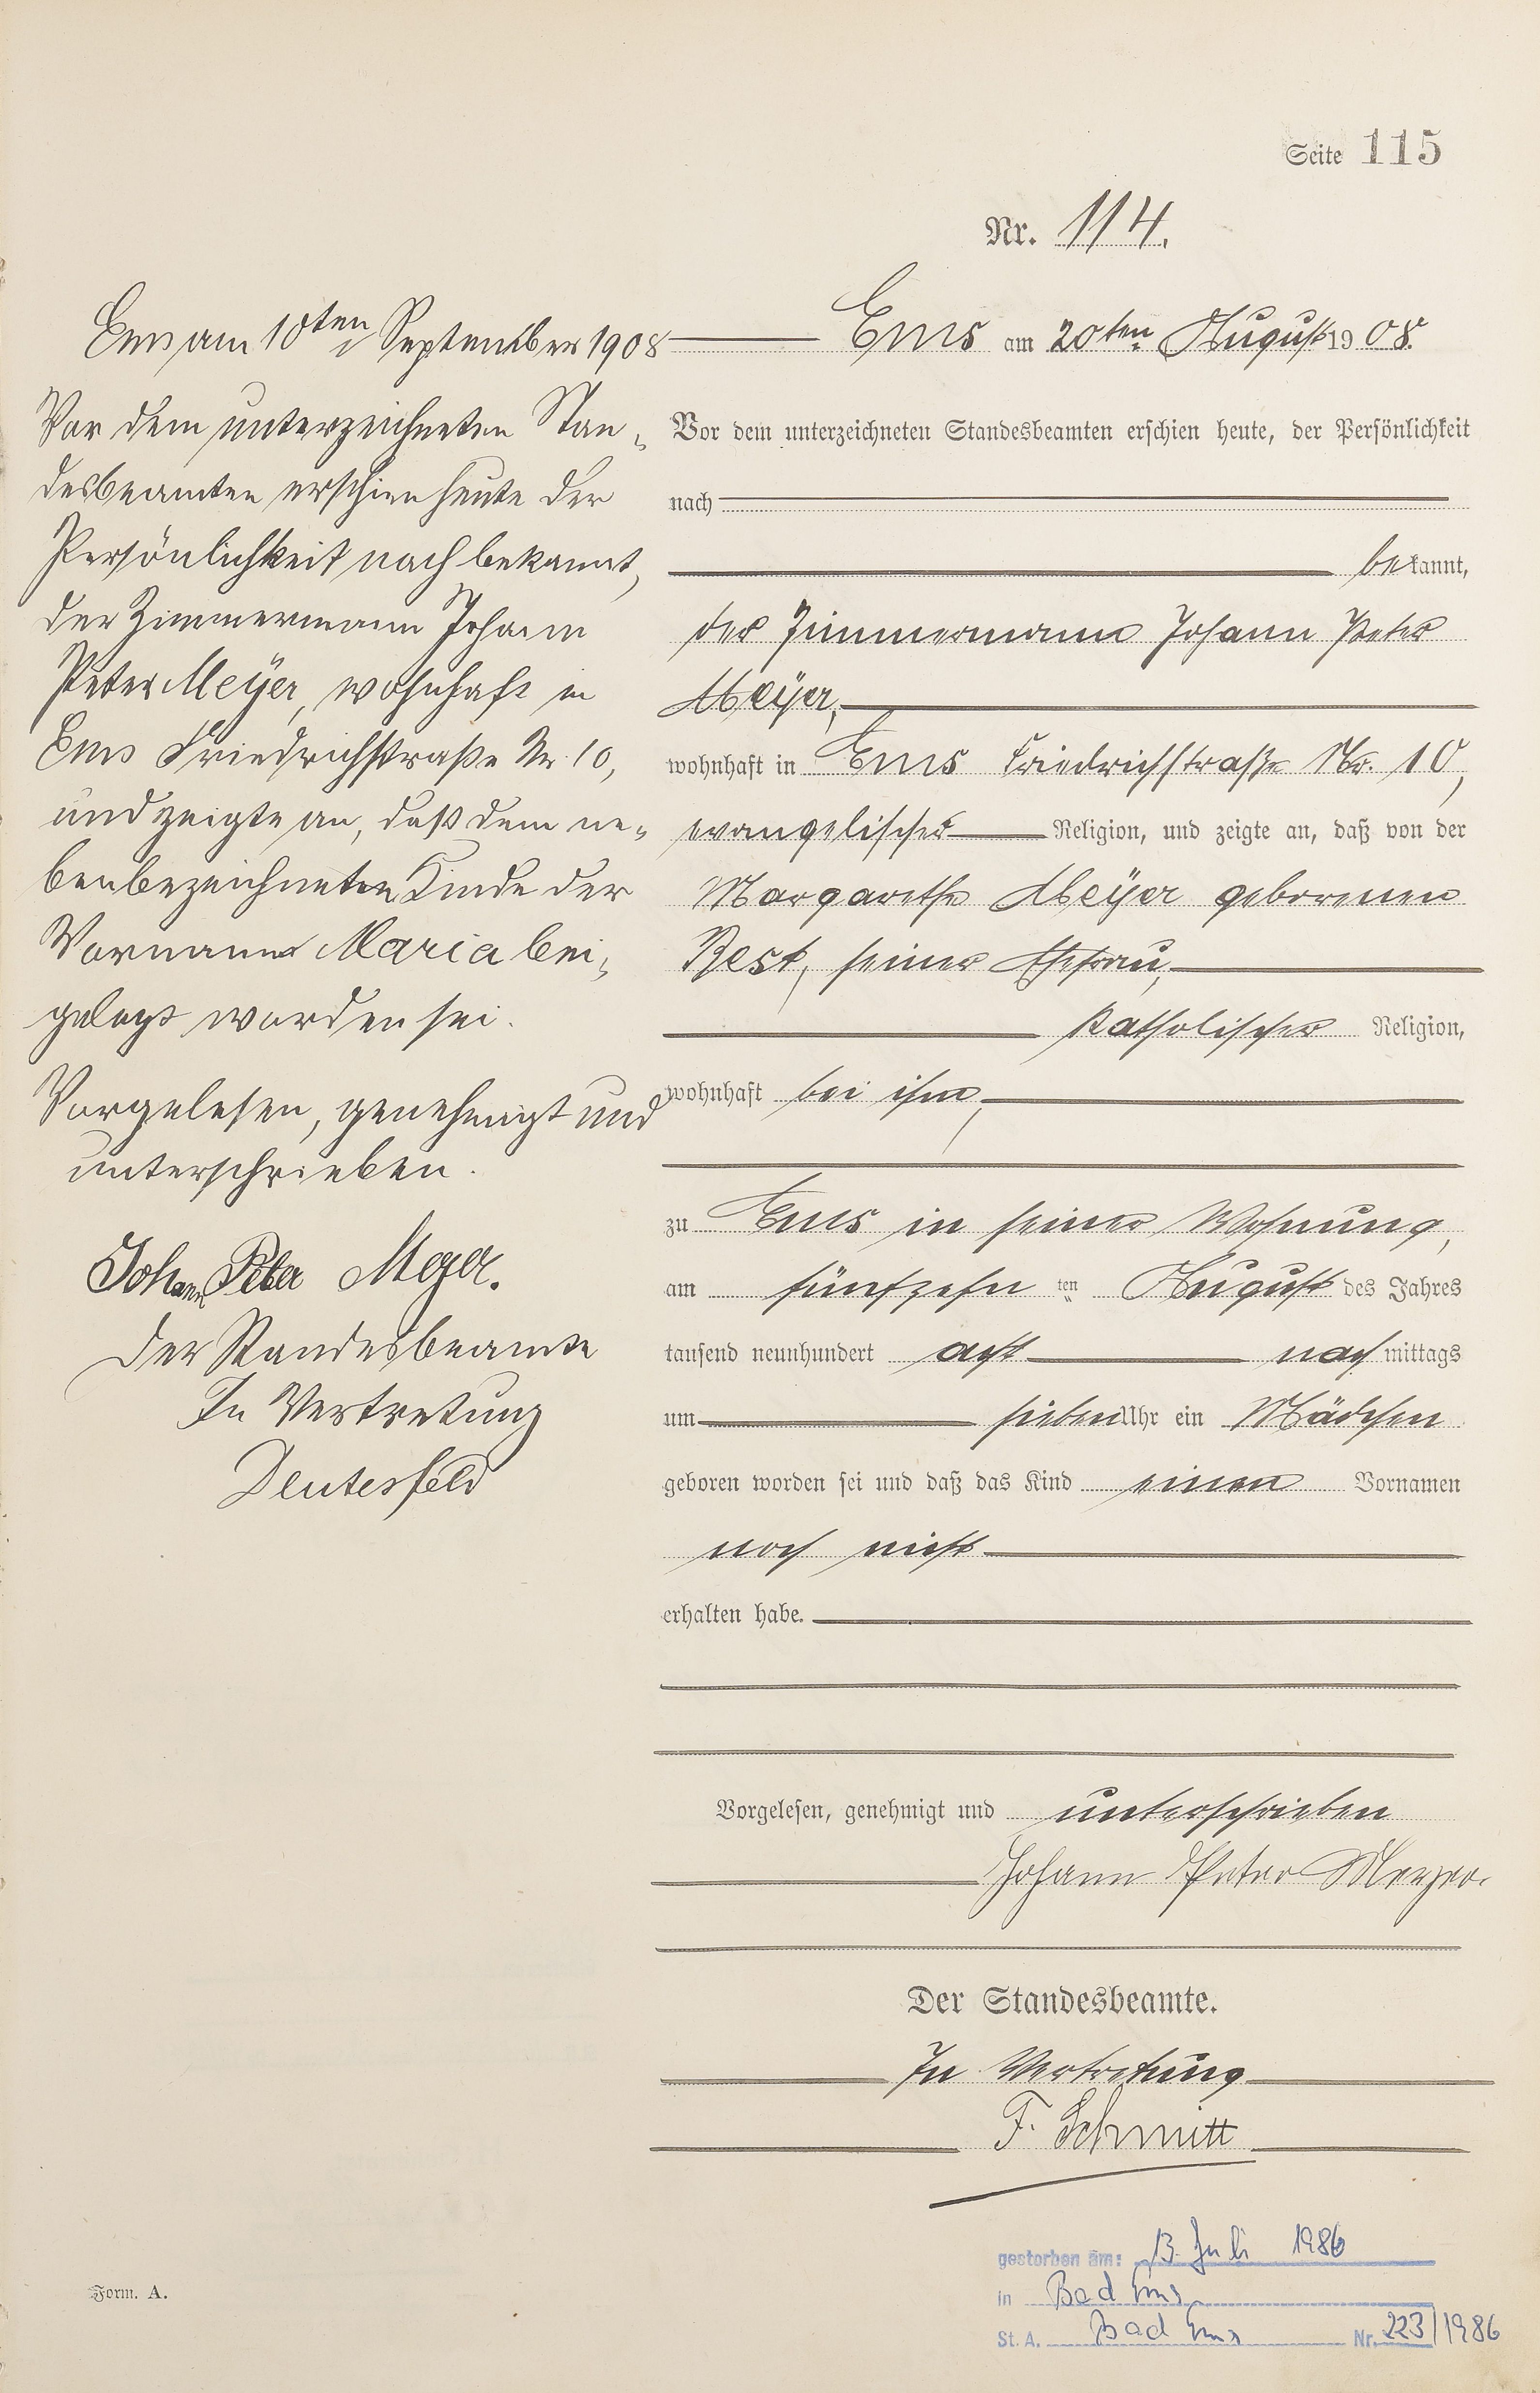 Seite 115
Nr. 114.
Ems am 20ten August 1908.
Vor dem unterzeichneten Standesbeamten erschien heute, der Persönlichkeit
nach
bekannt,
der Zimmermann Johann Peter
Meÿer,
wohnhaft in Ems Friedrichstraße Nr. 10,
evangelischer Religion, und zeigte an, daß von der
Margarethe Meÿer geborenen
Best, seiner Ehefrau,
katholischer Religion,
wohnhaft bei ihm,
zu Ems in seiner Wohnung,
am fünfzehn ten August des Jahres
tausend neunhundert acht nachmittags
um sieben Uhr ein Mädchen
geboren worden sei und daß das Kind einen Vornamen
noch nicht
erhalten habe.
Vorgelesen, genehmigt und unterschrieben
Johann Peter Meyer.
Der Standesbeamte.
In Vertretung
F. Schmitt
Ems am 10ten September 1908
Vor dem unterzeichneten Stan-
desbeamten erschien heute der
Persönlichkeit nach bekannt,
der Zimmermann Johann
Peter Meÿer, wohnhaft in
Ems Friedrichstraße Nr 10,
und zeigte an, daß dem ne-
benbezeichneten Kinde der
Vorname Maria bei-
gelegt worden sei.
Vorgelesen, genehmigt und
unterschrieben.
Johann Peter Meyer.
Der Standesbeamte
In Vertretung
Deutesfeld
gestorben am: 13. Juli 1986
in Bad Ems
St. A. Bad Ems Nr. 223/1986
Form. A.